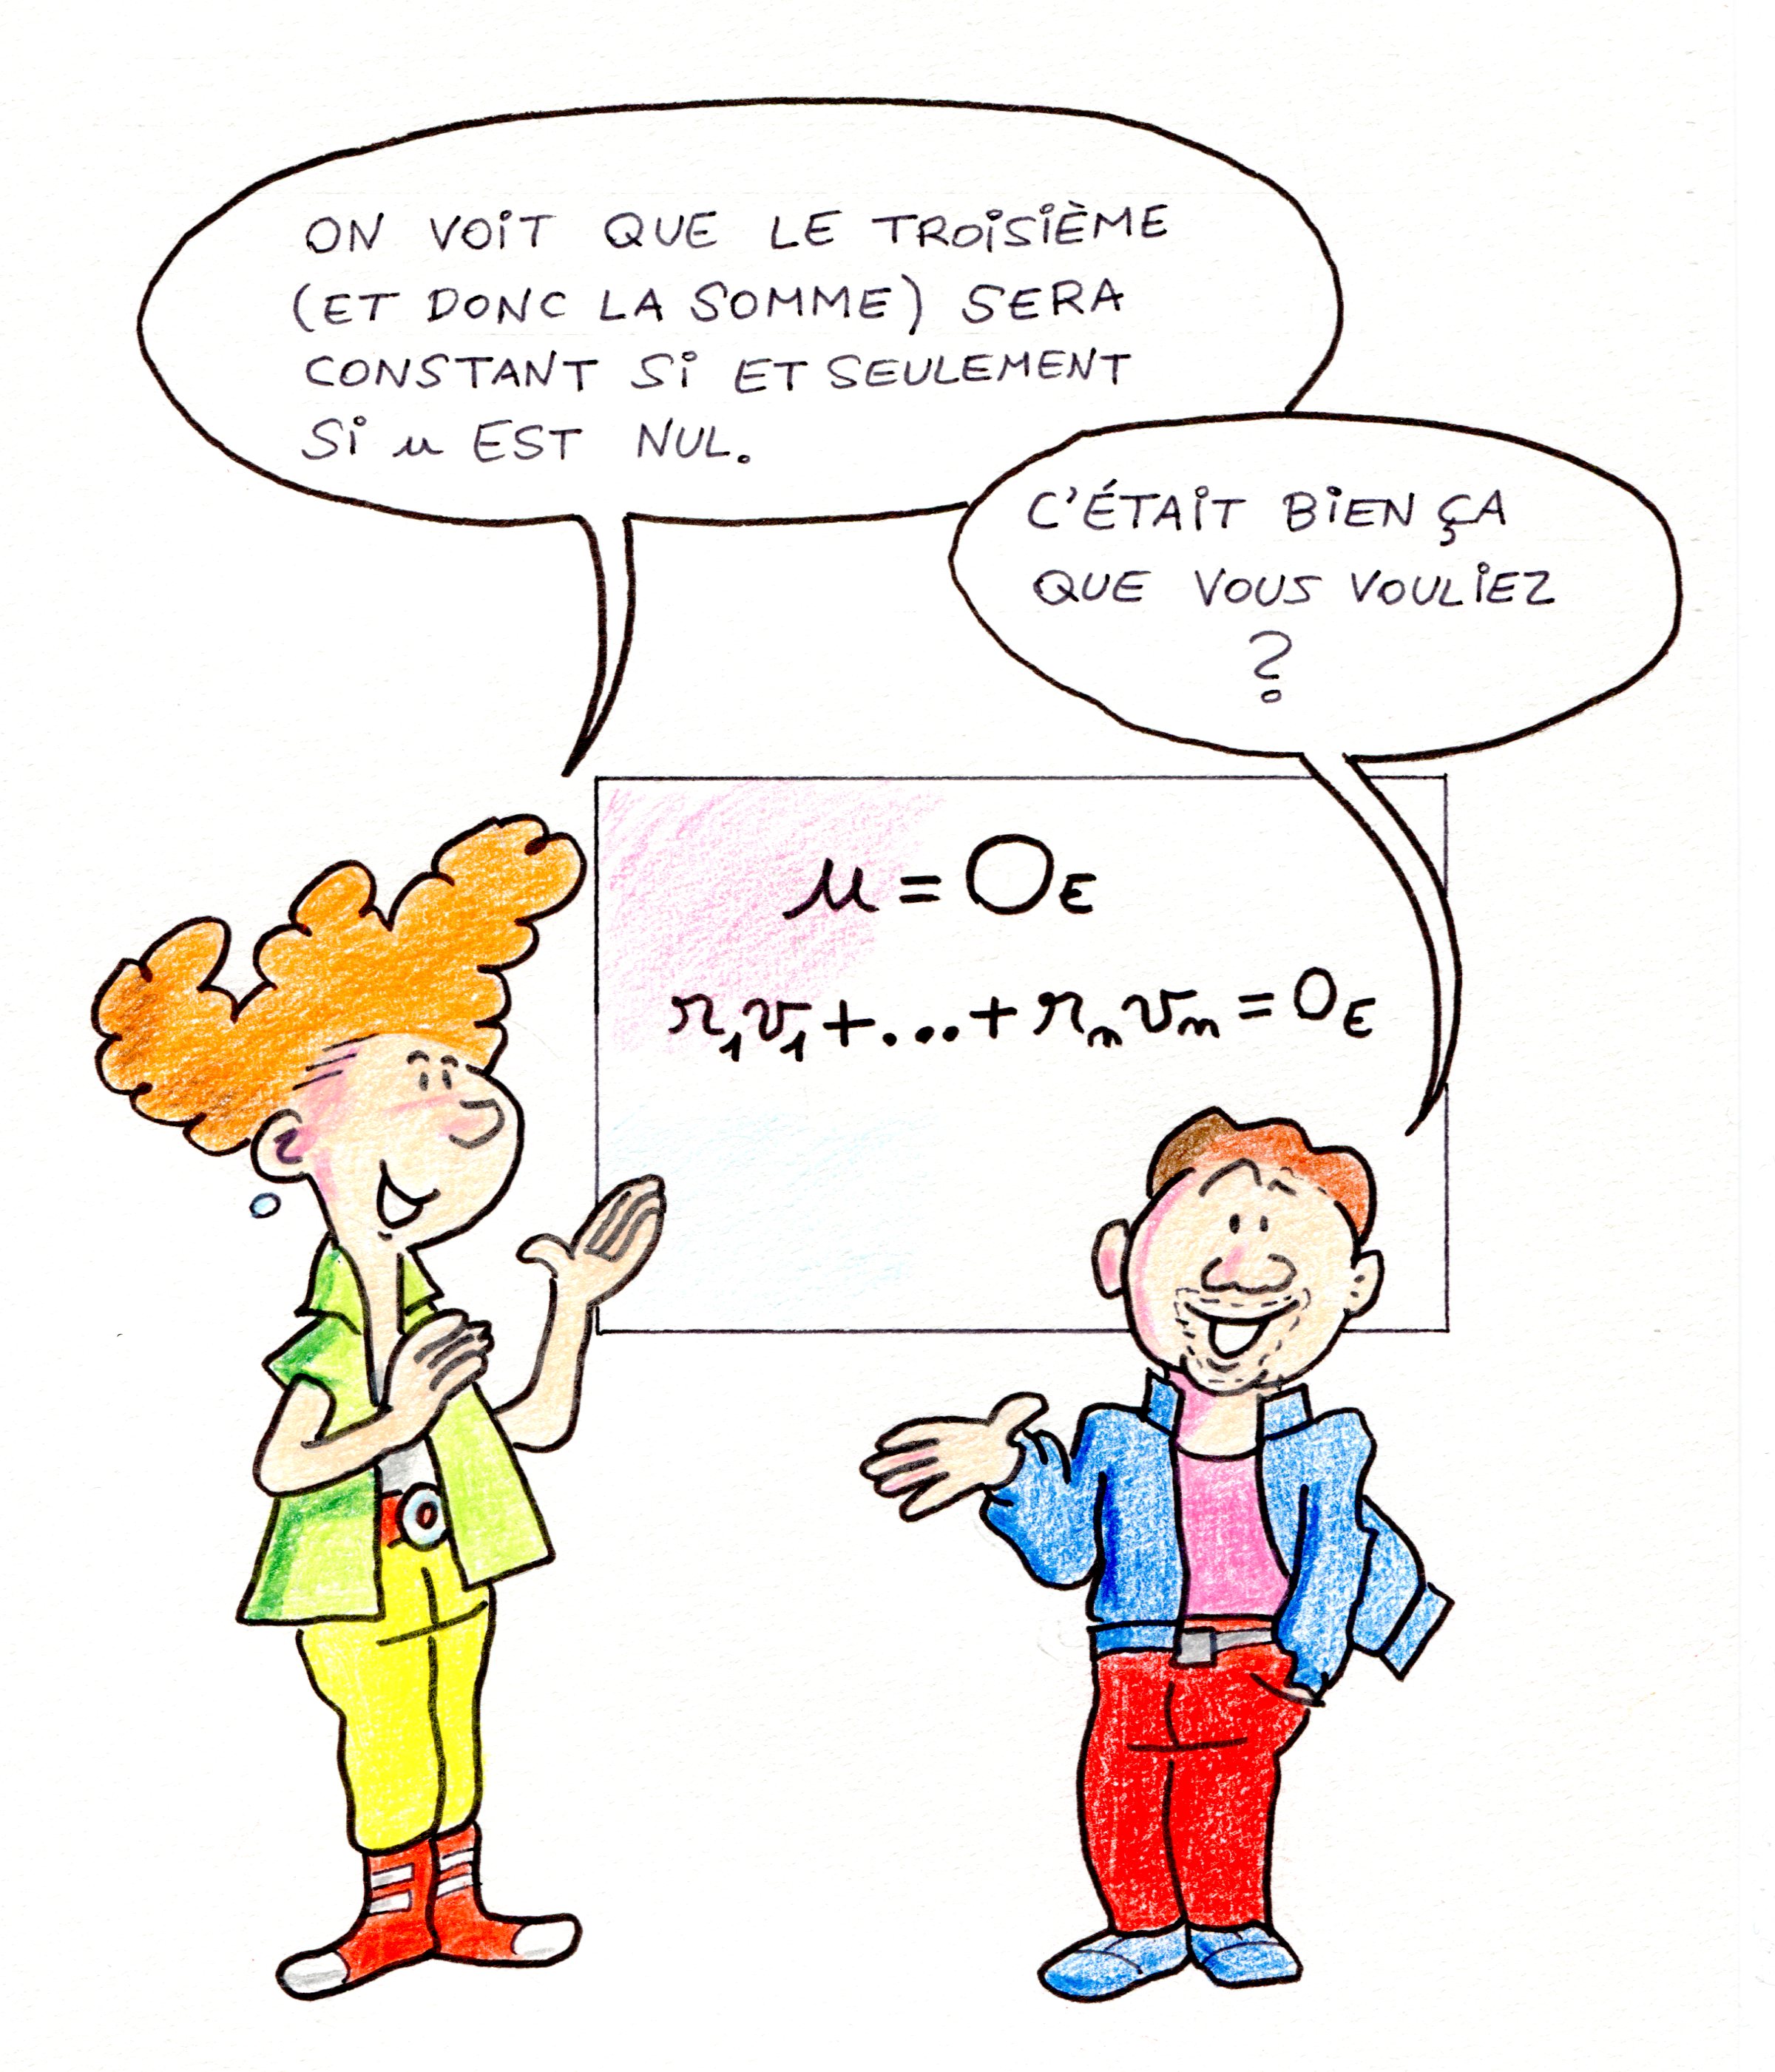 ON VOIT QUE LE TROISIÈME
(ET DONC LA SOMME) SERA
CONSTANT SI ET SEULEMENT
SI u EST NUL.
C'ÉTAIT BIEN ÇA
QUE VOUS VOULIEZ
?
u = O_E
r₁v₁+...+rₙvₙ = O_E